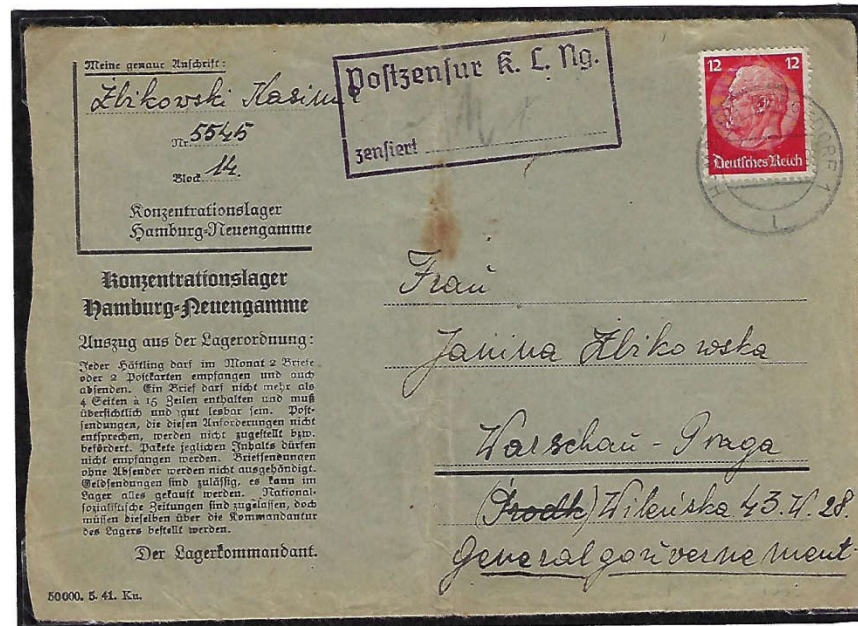 Meine genaue Anschrift:
Żbikovski Kasimir
Nr. 5545
Block 14.
Konzentrationslager
Hamburg-Neuengamme
Konzentrationslager
Hamburg-Neuengamme
Auszug aus der Lagerordnung:
Jeder Häftling darf im Monat 2 Briefe
oder 2 Postkarten empfangen und auch
absenden. Ein Brief darf nicht mehr als
4 Seiten à 15 Zeilen enthalten und muß
übersichtlich und gut lesbar sein. Post-
sendungen, die diesen Anforderungen nicht
entsprechen, werden nicht zugestellt bzw.
befördert. Pakete jeglichen Inhalts dürfen
nicht empfangen werden. Briefsendungen
ohne Absender werden nicht ausgehändigt.
Geldsendungen sind zulässig, es kann im
Lager alles gekauft werden. National-
sozialistische Zeitungen sind zugelassen, doch
müssen dieselben über die Kommandantur
des Lagers bestellt werden.
Der Lagerkommandant.
50000. 5. 41. Ku.
Postzensur K. L. Ng.
zensiert
12 12
Deutsches Reich
Frau
Janina Żbikowska
Warschau - Praga
Wileńska 43. W. 28.
Generalgouvernement